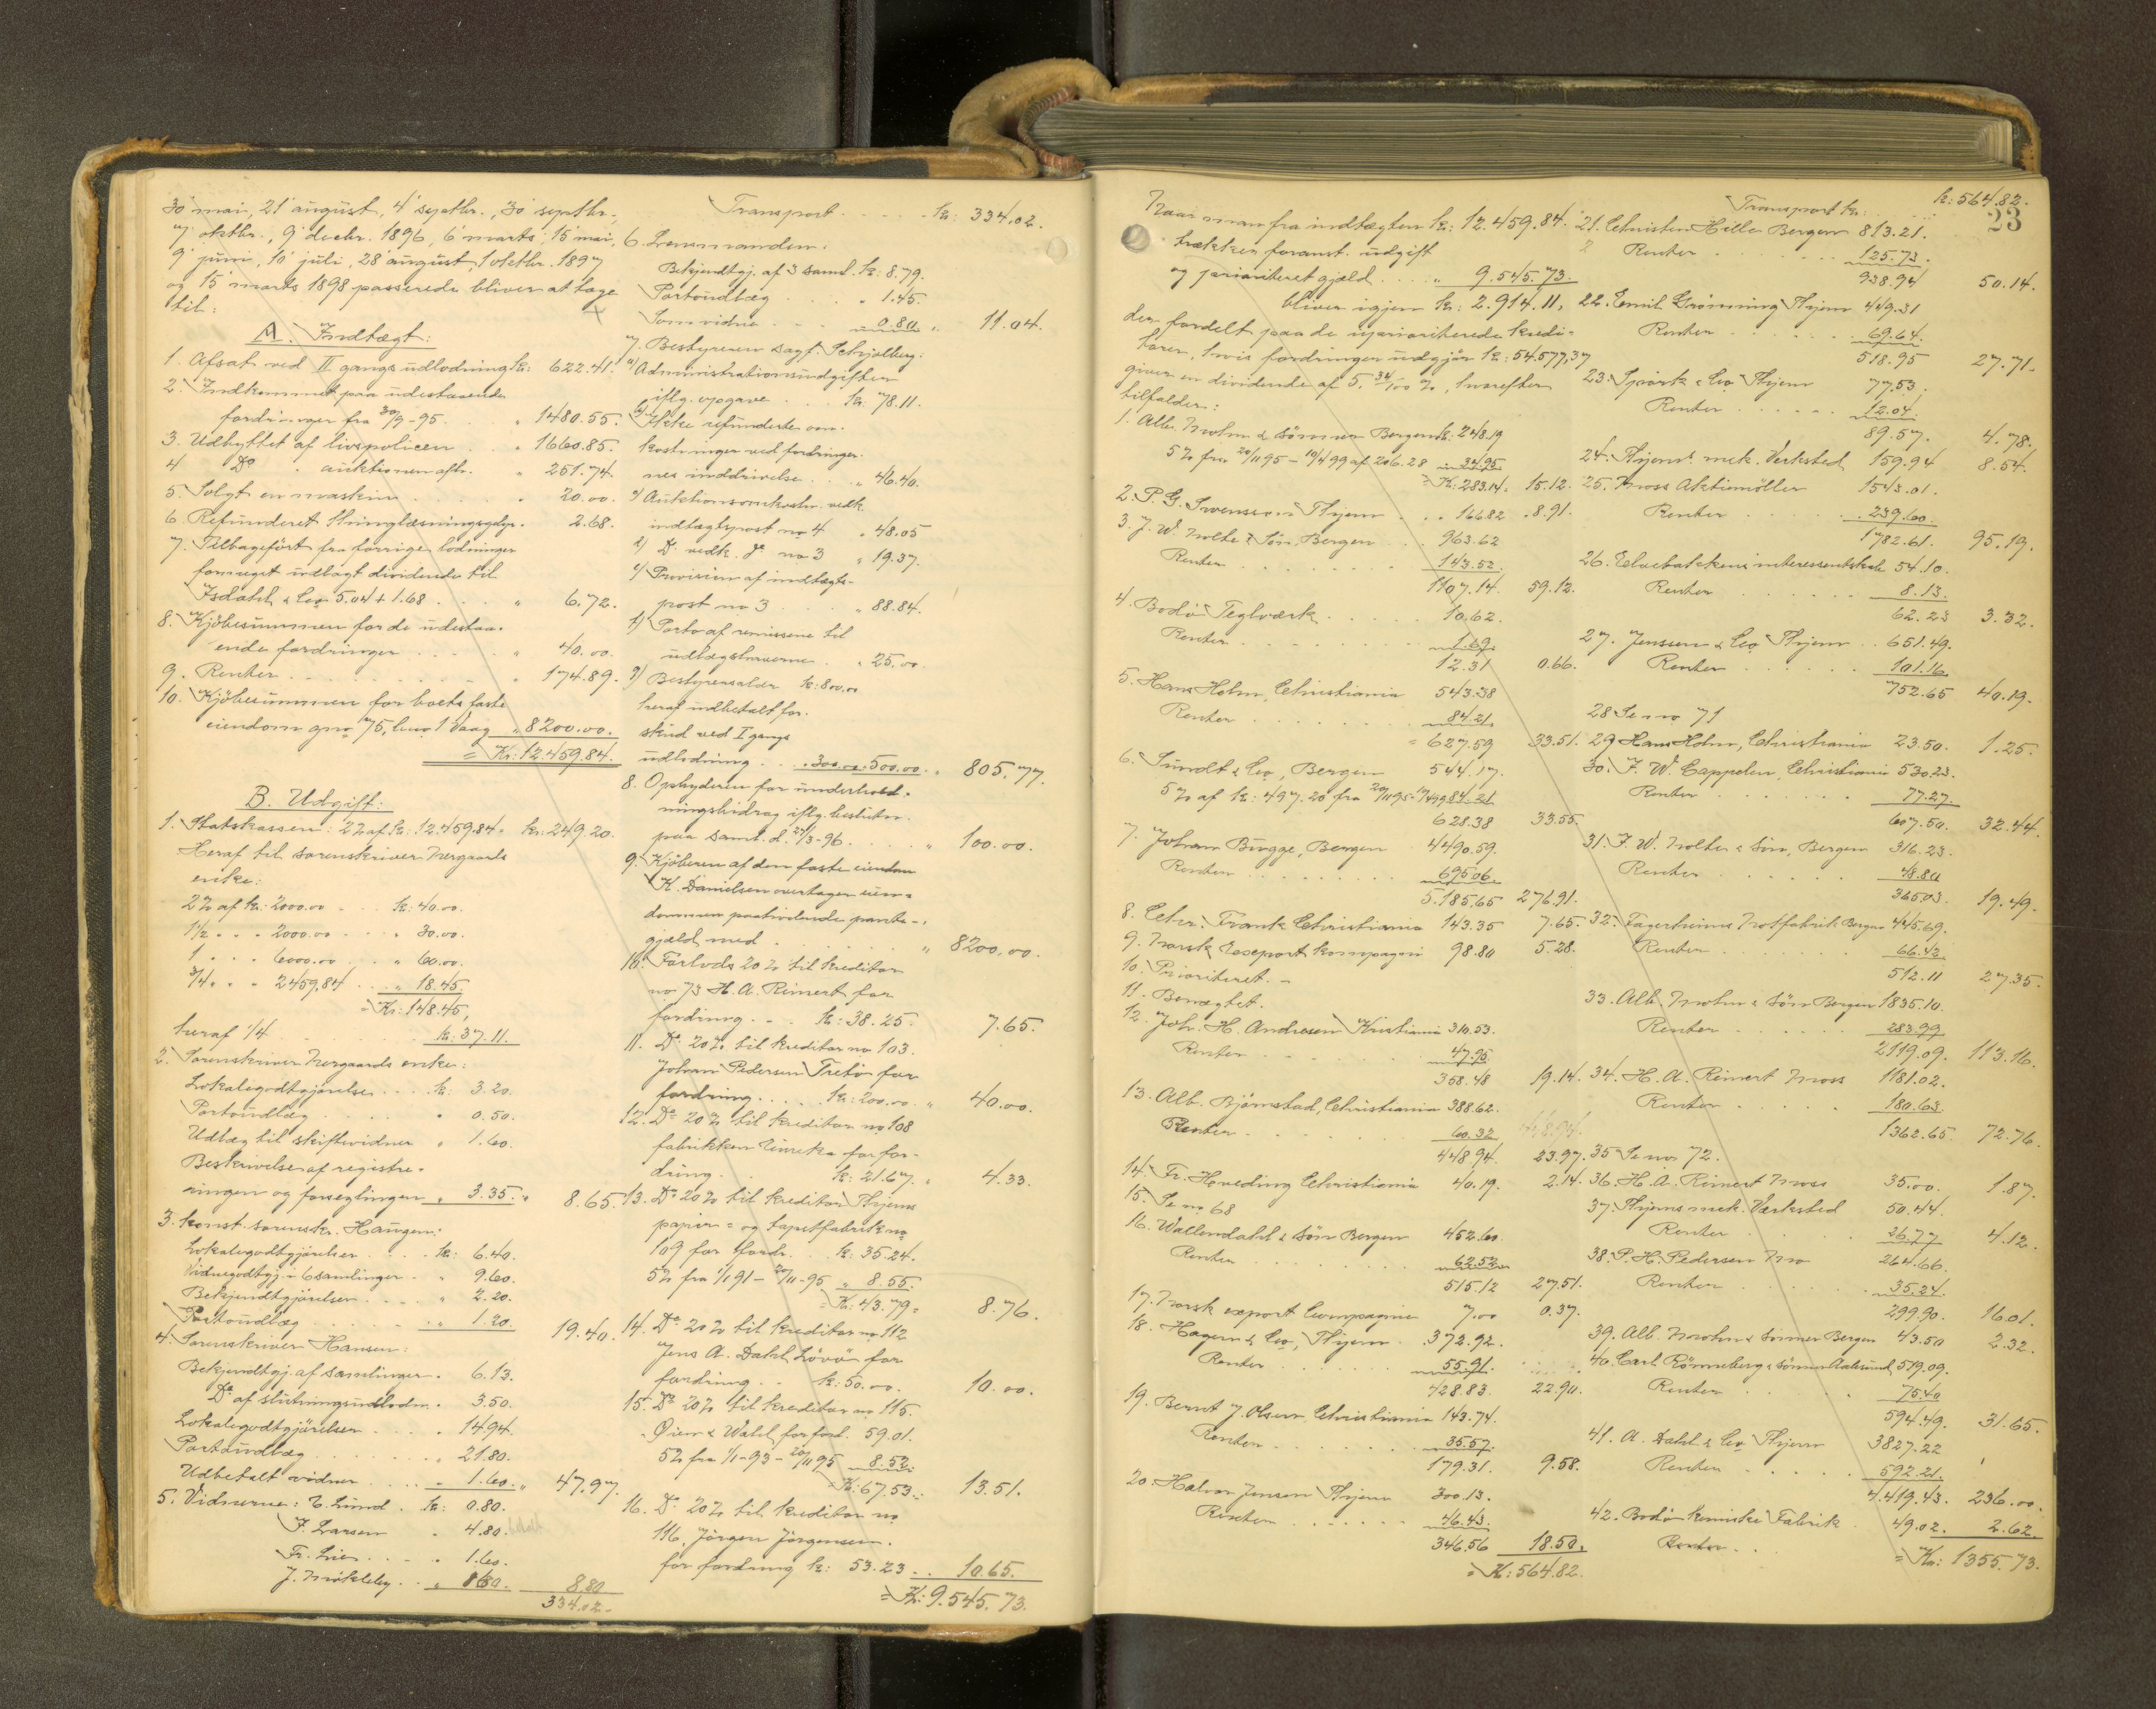 30' mai, 21' august, 4' septbr., 30' septbr.,
7' oktbr., 9' decbr. 1896, 6' marts, 15' mai,
9' juni, 10' juli, 28' august, 1' oktbr. 1897
og 15' marts 1898 passerede bliver at tage
til:
A. Indtægt:
1. Afsat ved II gangs udlodning kr: 622.41.
2. Indkommet paa udestaaende
fordringer fra 30/9-95 . . " 1480.55.
3. Udbyttet af livspolicen . . " 1660.85.
4 Do " auktionen aftr. " 251.74.
5. Solgt en maskin . . . . " 20.00.
6. Refunderet thinglæsningsgebyr. " 2.68.
7. Tilbageført fra forrige lodninger
formeget udlagt dividende til
Isdahl & Co 5.04 + 1.68 . . . " 6.72.
8. Kjöbesummen for de udestaa-
ende fordringer . . . . " 40.00.
9. Renter . . . . . . " 174.89.
10. Kjöbesummen for boets faste
eiendom gno 75, bno 1 Vaag " 8200.00.
= Kr: 12.459.84.
B. Udgift:
1. Statskassen: 2% af kr: 12.459.84 = kr: 249.20.
Heraf til sorenskriver Nergaards
enke:
2% af kr: 2000.00 . . kr: 40.00.
1½ " " " 2000.00 . . " 30.00.
1 " " " 6000.00 . . " 60.00.
3/4 " " " 2459.84 . . " 18.45.
= Kr: 148.45,
heraf 1/4 . . . . kr: 37.11.
2. Sorenskriver Nergaards enke:
Lokalegodtgjørelse . . . kr: 3.20.
Portoudlæg . . . " 0.50.
Udlæg til skiftevidner " 1.60.
Beskrivelse af registre-
ringen og forseglingen " 3.35. " 8.65.
3. Konst. sorenskr. Haugen:
Lokalegodtgjørelser . . . kr: 6.40.
Vidnegodtgj. i 6 samlinger . " 9.60.
Bekjendtgjørelser . . . " 2.20.
Portoudlæg . . . " 1.20 19.40.
4. Sorenskriver Hansen:
Bekjendtgj. af samlinger . 6.13.
Do af slutningsudlodn. . 3.50.
Lokalegodtgjørelser . . . . 14.94.
Portoudlæg . . . . " 21.80.
Udbetalt vidner . . . - 1.60. " 47.97.
5. Vidnerne: E. Lund . kr: 0.80.
F. Larsen " 4.80.
Fr. Lies . . . " 1.60.
J. Mökleby . . " 1.60. 8.80
334.02.
Transport . . . . kr: 334.02.
6. Lensmanden:
Bekjendtgj. af 3 saml. kr: 8.79.
Portoudlæg . . . " 1.45.
Som vidne . . . 0.80. " 11.04.
7. Bestyreren sagf. Schjølberg:
a) Administrationsudgifter
iflg. opgave . . . kr. 78.11.
b) Ikke refunderte om-
kostninger ved fordringer-
nes inddrivelse . . " 46.40.
c) Auktionsomkostn. vedk.
indtægtspost no 4 " 48.05
d) Do vedk. do no 3 " 19.37.
e) Provision af indtægts-
post no 3 . . . " 88.84.
f) Porto af remissene til
udlægshaverne . " 25.00
g) Bestyrersalær kr: 800.00
heraf udbetalt for-
skud ved I gangs
udlodning . . " 300.00 : 500.00 . " 805.77.
8. Opbyderen for underhold-
ningsbidrag iflg. beslutn.
paa saml. d. 21/3-96 . . . " 100.00.
9. Kjöberen af den faste eiendom
K. Danielsen overtager eien-
dommen paahvilende pante-
gjæld med . . . . . " 8200.00.
10. Forlods 20% til kreditor
no 73 H. A. Reinert for
fordring . . . kr: 38.25. 7.65.
11. Do 20% til kreditor no 103.
Johan Pedersen Tretö for
fordring . . . . kr: 200.00. " 40.00.
12. Do 20% til kreditor no 108
fabrikken Eureka for for-
dring . . kr: 21.67. " 4.33.
13. Do 20% til kreditor Thjems
papir- og tapetfabrik no
109 for fordr. . . kr: 35.24.
5% fra 1/1 91 - 20/11-95 " 8.55.
= Kr: 43.79 = 8.76.
14. Do 20% til kreditor no 112
Jens A. Dahl Lövö for
fordring . . kr: 50.00. 10.00.
15. Do 20% til kreditor no 115.
Øien & Wahl for ford. 59.01.
5% fra 1/1-93 - 20/11 95 8.52.
= Kr: 67.53 : 13.51.
16. Do 20% til kreditor no
116. Jörgen Jörgensen.
for fordring kr: 53.23 . . 10.65.
= Kr: 9.545.73.
23
Naar man fra indtægten kr: 12.459.84.
trækker foranst. udgift
og prioriteret gjæld . . . " 9.545.73.
bliver igjen kr: 2.914.11,
der fordelt paa de uprioriterede kredi-
torer, hvis fordringer udgjör kr: 54.577.37
giver en dividende af 5.34/100 %, hvorefter
tilfalder:
1. Alb. Mohn & Sönner Bergen kr: 248.19
5% fra 20/11 95 - 10/4 99 af 206.28 34.95
Kr: 283.14. 15.12.
2. P. G. Svensson Thjem . . " 166.82 " 8.91.
3. J. W. Molte & Sön, Bergen . . 963.62
Renter . . . . . 143.52.
1107.14 59.12.
4. Bodö Teglværk . . . . 10.62.
Renter . . . . . 1.69.
12.31 0.66.
5. Hans Holm, Christiania 543.38
Renter . . . . . 84.21.
= 627.59 33.51.
6. Sundt & Co, Bergen 544.17.
5% af kr: 497.20 fra 20/11 95 - 10/4 99 84.21
628.38 33.55.
7. Johan Brügge, Bergen . 4490.59.
Renter . . . . . 695.06.
5.185.65 276.91.
8. Chr. Frank Christiania 143.35 7.65.
9. Norsk Export kompagni 98.80 5.28.
10. Prioriteret. -
11. Benægtet.
12. Joh. H. Andresen Kristiania 310.53.
Renter . . . . . 47.95.
358.48 19.14.
13. Alb. Bjørnstad, Christiania 388.62.
Renter . . . . . 60.32
448.94. 23.97.
14. Fr. Hoveding Christiania 40.19. 2.14.
15. Se no 68
16. Wallendahl & Sön Bergen 452.60.
Renter . . . . . 62.52
515.12 27.51.
17. Norsk export kompagni 7.00 0.37.
18. Hagen & Co, Thjem . 372.92.
Renter . . . . . 55.91.
428.83. 22.90.
19. Bernt J. Olsen, Christiania 143.74.
Renter . . . . . 35.57.
179.31. 9.58.
20. Halvor Jensen Thjem 300.13.
Renter . . . . . 46.43.
346.56 18.50.
= K: 564.82.
Transport kr: . . . k: 564.82.
21. Christen Hille Bergen 813.21.
Renter . . . . . 125.73.
938.94 50.14.
22. Emil Grönning Thjem 449.31
Renter . . . . 69.64.
518.95 27.71.
23. Spörck & Co Thjem 77.53.
Renter . . . . 12.04.
89.57. 4.78.
24. Thjems. mek. Verksted 159.94 8.54.
25. Moss Aktiemöller 1543.01.
Renter . . . . 239.60.
1782.61. 95.19.
26. Elvebakkens interessentskab 54.10.
Renter . . . . 8.13.
62.23 3.32.
27. Jenssen & Co Thjem . . 651.49.
Renter . . . . 101.16
752.65 40.19.
28 Se no 71
29 Hans Holm, Christiania 23.50. 1.25.
30. F. W. Cappelen, Christiania 530.23.
Renter . . . . 77.27.
607.50. 32.44.
31. F. W. Molter & Sön, Bergen 316.23.
Renter . . . . 48.80
365.03. 19.49.
32. Fagerheims Notfabrik Bergen 445.69.
Renter . . . . 66.42
512.11 27.35.
33. Alb. Mohn & Sön Bergen 1835.10.
Renter . . . . 283.99
2119.09. 113.16.
34. H. A. Reinert Moss 1181.02.
Renter . . . . 180.63.
1362.65. 72.76.
35 Se no 72.
36. H. A. Reinert Moss 35.00. 1.87.
37. Thjems mek. Værksted 50.44.
Renter . . . . 26.77 4.12.
38. P. H. Pedersen Mo 264.66.
Renter . . . . 35.24.
299.90. 16.01.
39. Alb. Mohn & Sönner Bergen 43.50 2.32.
40. Carl Rönneberg & Sönner Aalesund 519.09.
Renter . . . . 75.40
594.49. 31.65.
41. A. Dahl & Co Thjem 3827.22
Renter . . . . 592.21.
4.419.43. 236.00.
42. Bodö kemiske Fabrik . 49.02. 2.62.
Renter . . = Kr: 1355.73.